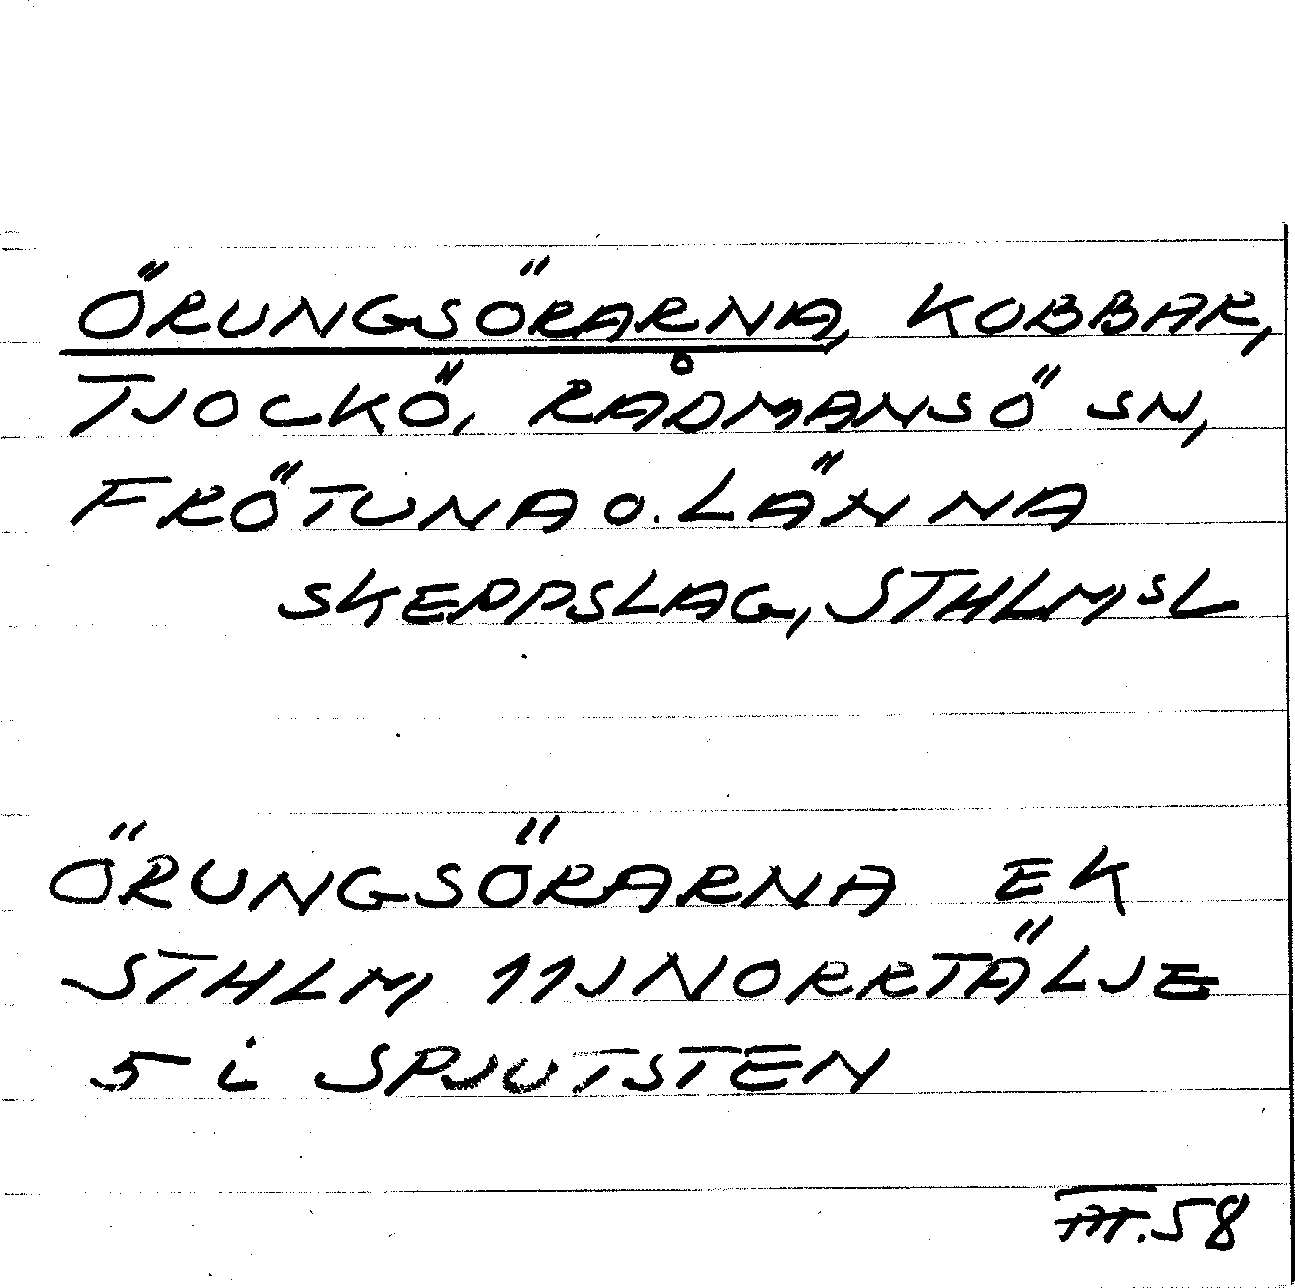 ÖRUNGSÖRARNA, KOBBAR,
TJOCKÖ, RÅDMANSÖ SN,
FRÖTUNA O. LÄNNA
SKEPPSLAG, STHLMSL
ÖRUNGSÖRARNA EK
STHLM 11J NORRTÄLJE
5 i SPJUTSTEN
.58